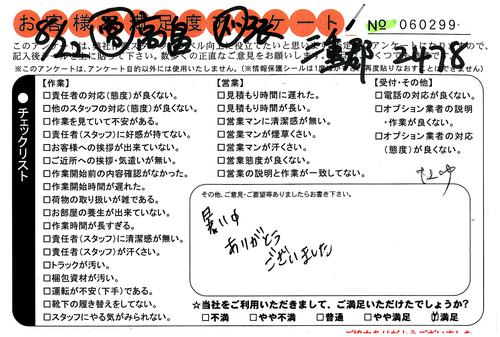 お客様満足度アンケート!
№ 060299
2478
記入後
※このアンケートは、アンケート目的以外には使用いたしません。
チェックリスト
【作業】
□責任者の対応(態度)が良くない。
□他のスタッフの対応(態度)が良くない。
□作業を見ていて不安がある。
□責任者(スタッフ)に好感が持てない。
□お客様への挨拶が出来ていない。
□ご近所への挨拶・気遣いが無い。
□作業開始前の内容確認がなかった。
□作業開始時間が遅れた。
□荷物の取り扱いが雑である。
□お部屋の養生が出来ていない。
□作業時間が長すぎる。
□責任者(スタッフ)に清潔感が無い。
□責任者(スタッフ)が汗くさい。
□トラックが汚い。
□梱包資材が汚い。
□運転が不安(下手)である。
□靴下の履き替えをしてない。
□スタッフにやる気がみられない。
【営業】
□見積もり時間に遅れた。
□見積もり時間が長い。
□営業マンに清潔感が無い。
□営業マンが煙草くさい。
□営業マンが汗くさい。
□営業態度が良くない。
□営業の説明と作業が一致してない。
【受付・その他】
□電話の対応が良くない。
□オプション業者の説明
・作業が良くない。
□オプション業者の対応
(態度)が良くない。
その他、ご意見・ご要望等ありましたらお書き下さい。
暑い中
ありがとう
ございました
★当社をご利用いただきまして、ご満足いただけたでしょうか?
□不満 □やや不満 □普通 □やや満足 □満足
ご協力ありがとうございました